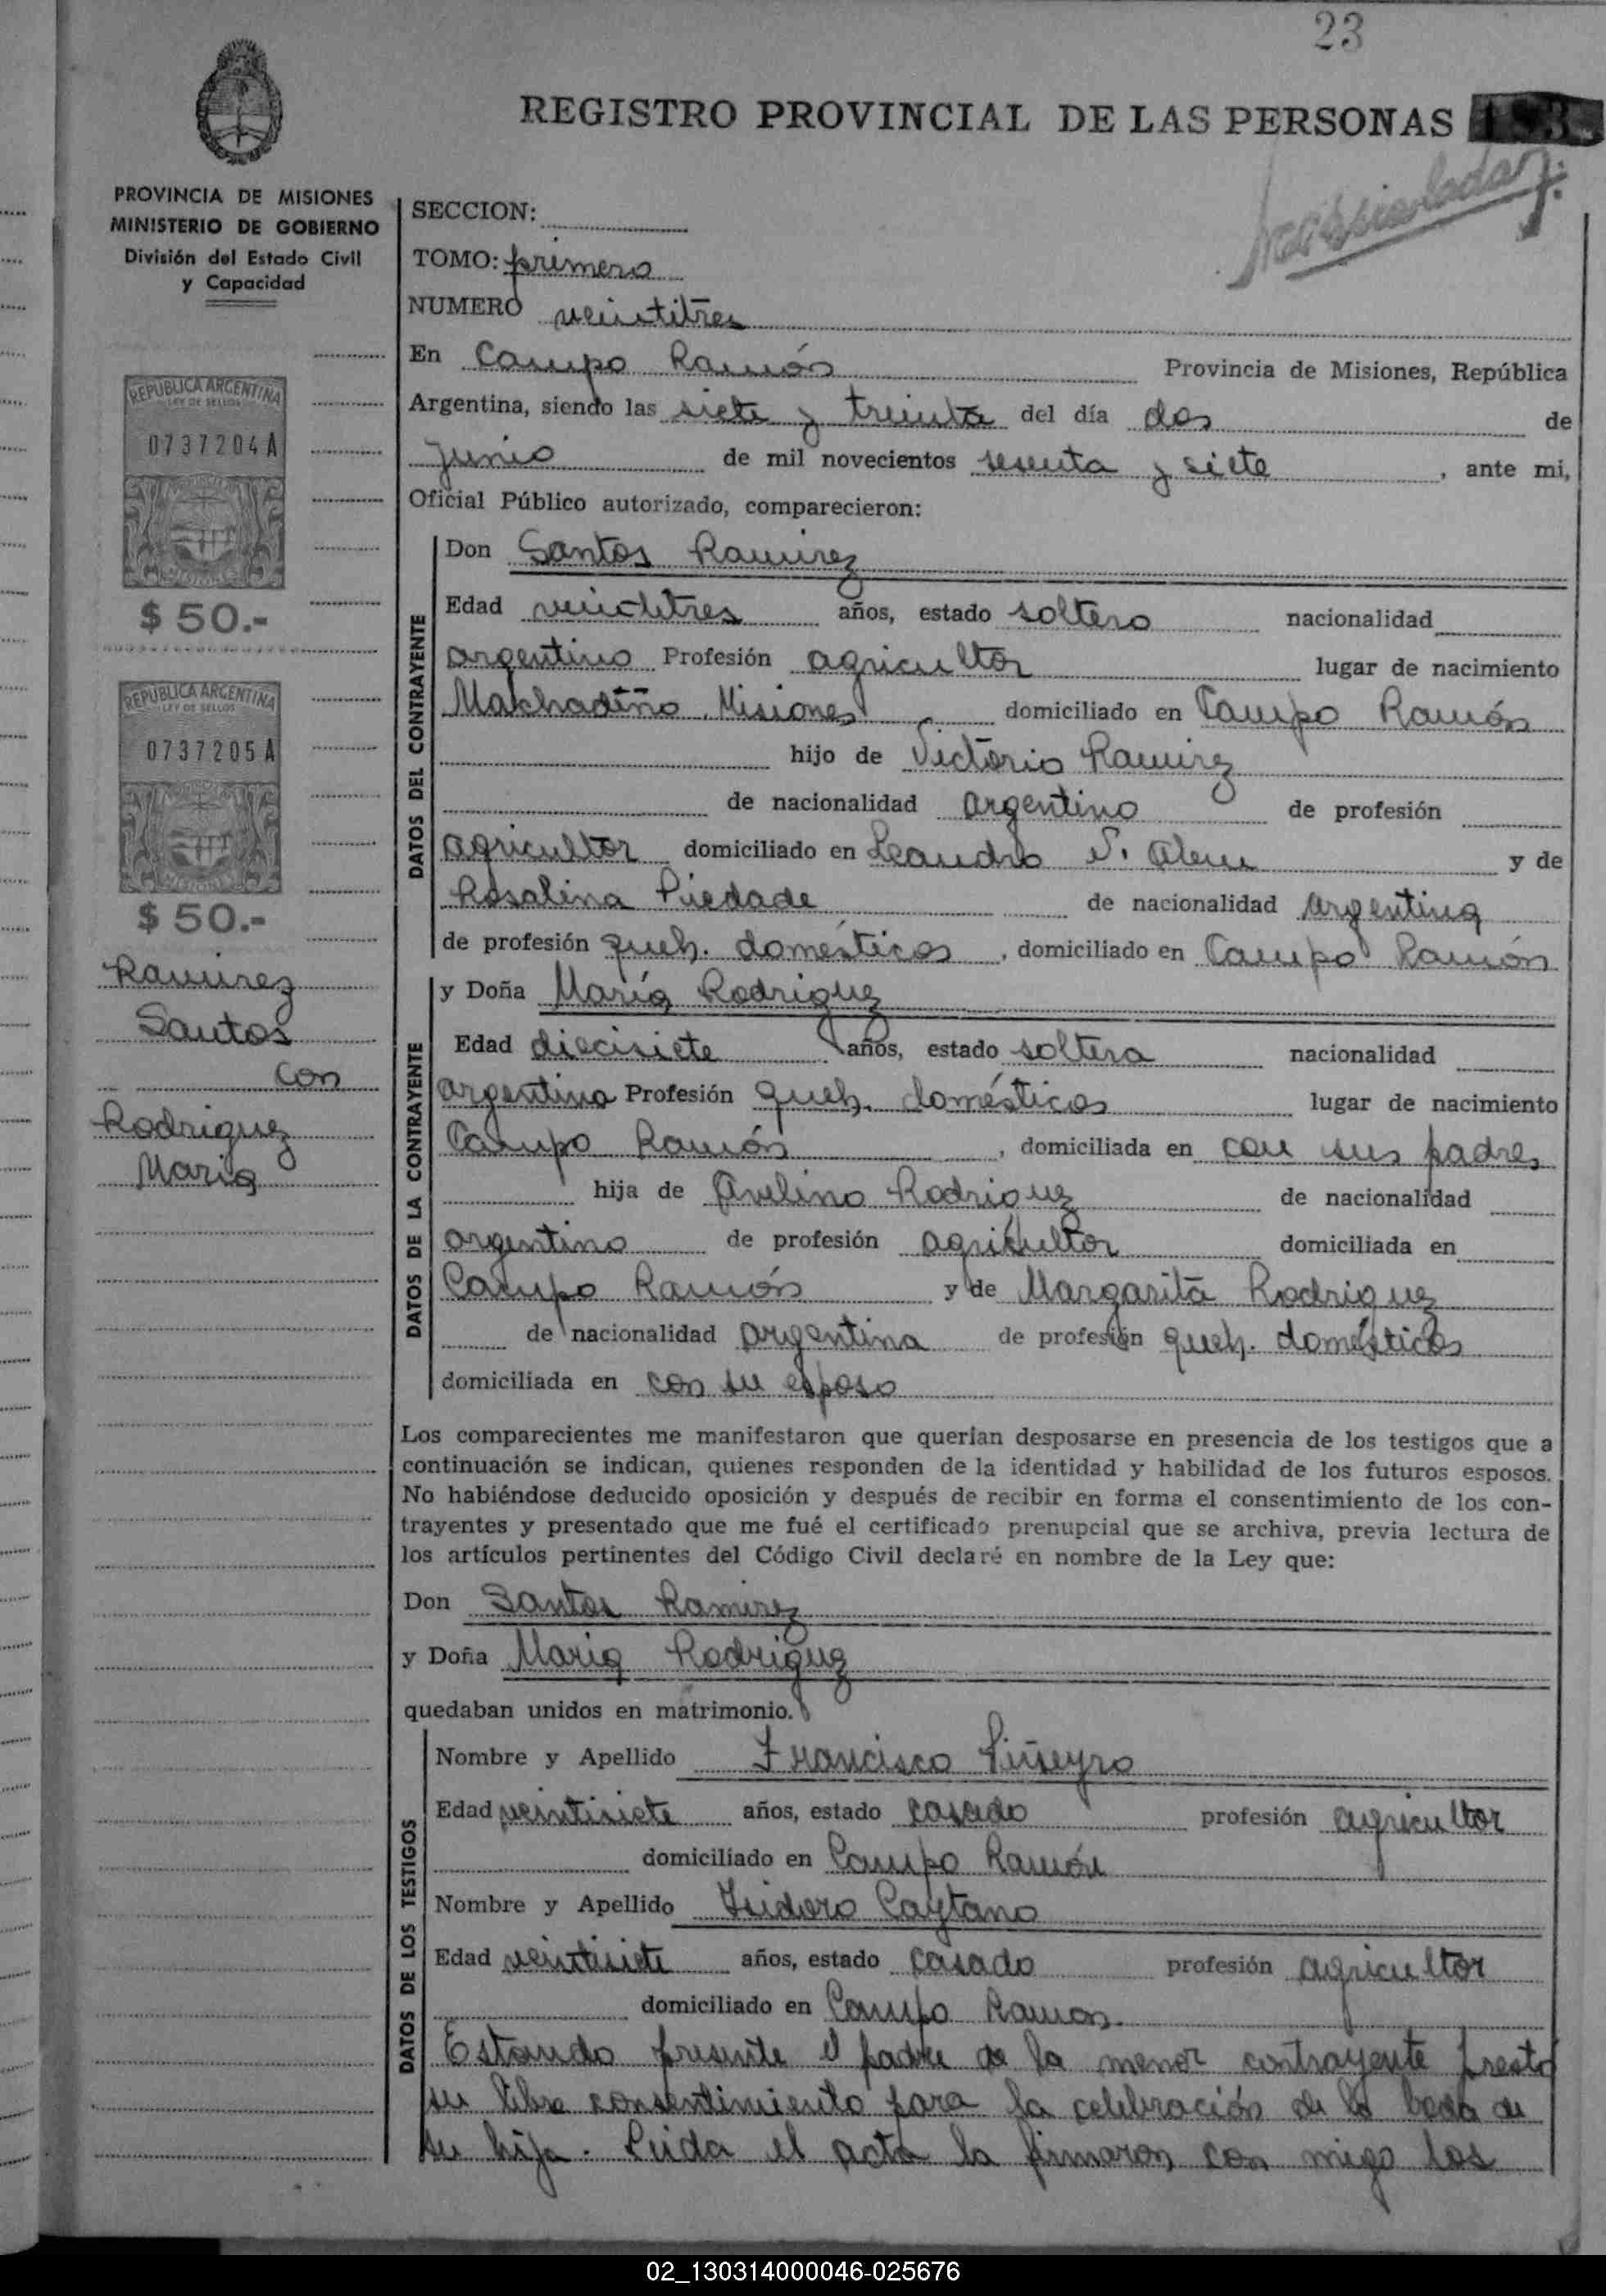 23
REGISTRO PROVINCIAL DE LAS PERSONAS
PROVINCIA DE MISIONES
MINISTERIO DE GOBIERNO
División del Estado Civil
y Capacidad
REPUBLICA ARGENTINA
LEY DE SELLOS
0737204A
MISIONES
$ 50.-
REPUBLICA ARGENTINA
LEY DE SELLOS
0737205A
MISIONES
$ 50.-
Ramirez
Santos
con
Rodriguez
Maria
SECCION:
TOMO: primero
NUMERO veintitres
En Campo Ramón Provincia de Misiones, República
Argentina, siendo las siete y treinta del día dos de
junio de mil novecientos sesenta y siete, ante mi,
Oficial Público autorizado, comparecieron:
DATOS DEL CONTRAYENTE
Don Santos Ramirez
Edad veintitres años, estado soltero nacionalidad
argentino Profesión agricultor lugar de nacimiento
Makhadiño, Misiones domiciliado en Campo Ramón
hijo de Victorio Ramirez
de nacionalidad argentino de profesión
agricultor domiciliado en Leandro N. Alem y de
Rosalina Piedade de nacionalidad argentina
de profesión queh. domésticos, domiciliado en Campo Ramón
DATOS DE LA CONTRAYENTE
y Doña María Rodriguez
Edad diecisiete años, estado soltera nacionalidad
argentina Profesión queh. domésticos lugar de nacimiento
Campo Ramón, domiciliada en con sus padres
hija de Avelino Rodriguez de nacionalidad
argentino de profesión agricultor domiciliada en
Campo Ramón y de Margarita Rodriguez
de nacionalidad argentina de profesión queh. domésticos
domiciliada en con su esposo
Los comparecientes me manifestaron que querían desposarse en presencia de los testigos que a
continuación se indican, quienes responden de la identidad y habilidad de los futuros esposos.
No habiéndose deducido oposición y después de recibir en forma el consentimiento de los con-
trayentes y presentado que me fué el certificado prenupcial que se archiva, previa lectura de
los artículos pertinentes del Código Civil declaré en nombre de la Ley que:
Don Santos Ramirez
y Doña Maria Rodriguez
quedaban unidos en matrimonio.
DATOS DE LOS TESTIGOS
Nombre y Apellido Francisco Piñeyro
Edad veintisiete años, estado casado profesión agricultor
domiciliado en Campo Ramón
Nombre y Apellido Isidoro Caytano
Edad veintisiete años, estado casado profesión agricultor
domiciliado en Campo Ramon.
Estando presente el padre de la menor contrayente prestó
su libre consentimiento para la celebración de la boda de
su hija. Leida el acta la firmaron con migo los
02_130314000046-025676